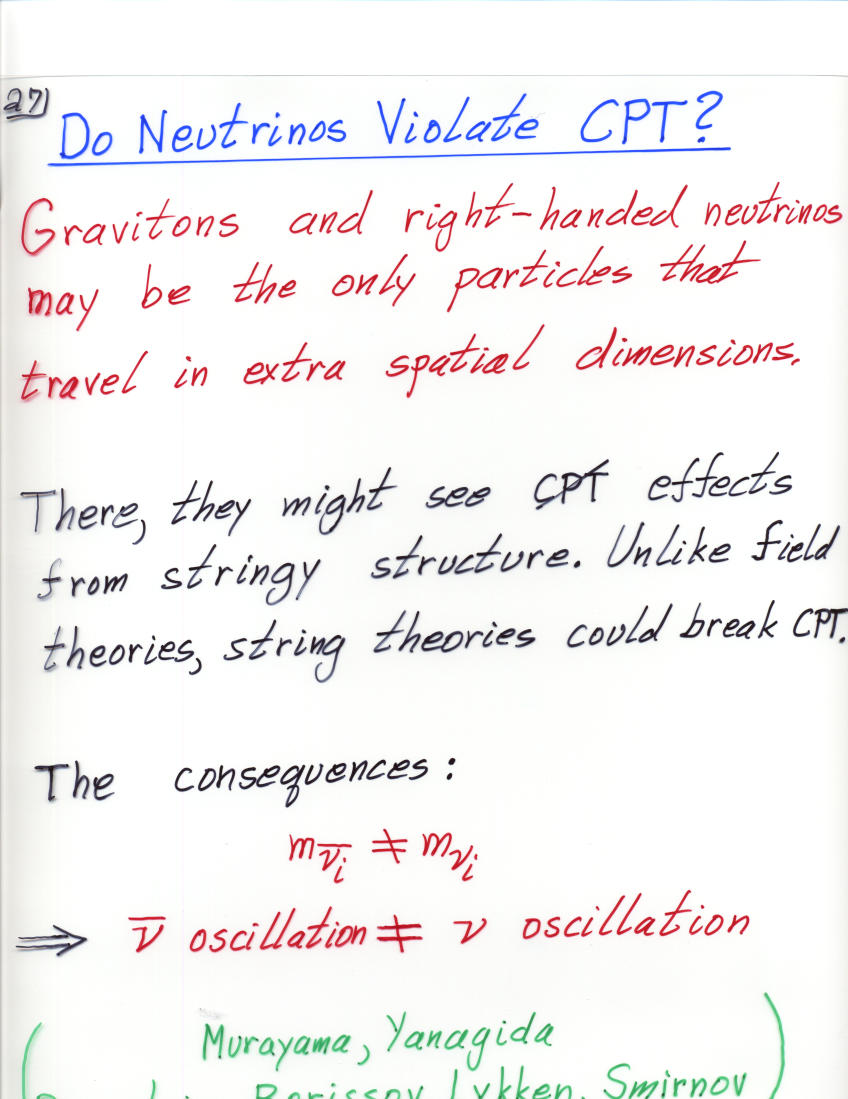 27)
Do Neutrinos Violate CPT?
Gravitons and right-handed neutrinos
may be the only particles that
travel in extra spatial dimensions.
There, they might see C̸P̸T̸ effects
from stringy structure. Unlike field
theories, string theories could break CPT.
The consequences:
m_ν̄ᵢ ≠ m_νᵢ
⟹ ν̄ oscillation ≠ ν oscillation
( Murayama, Yanagida )
Borissov, Lykken, Smirnov